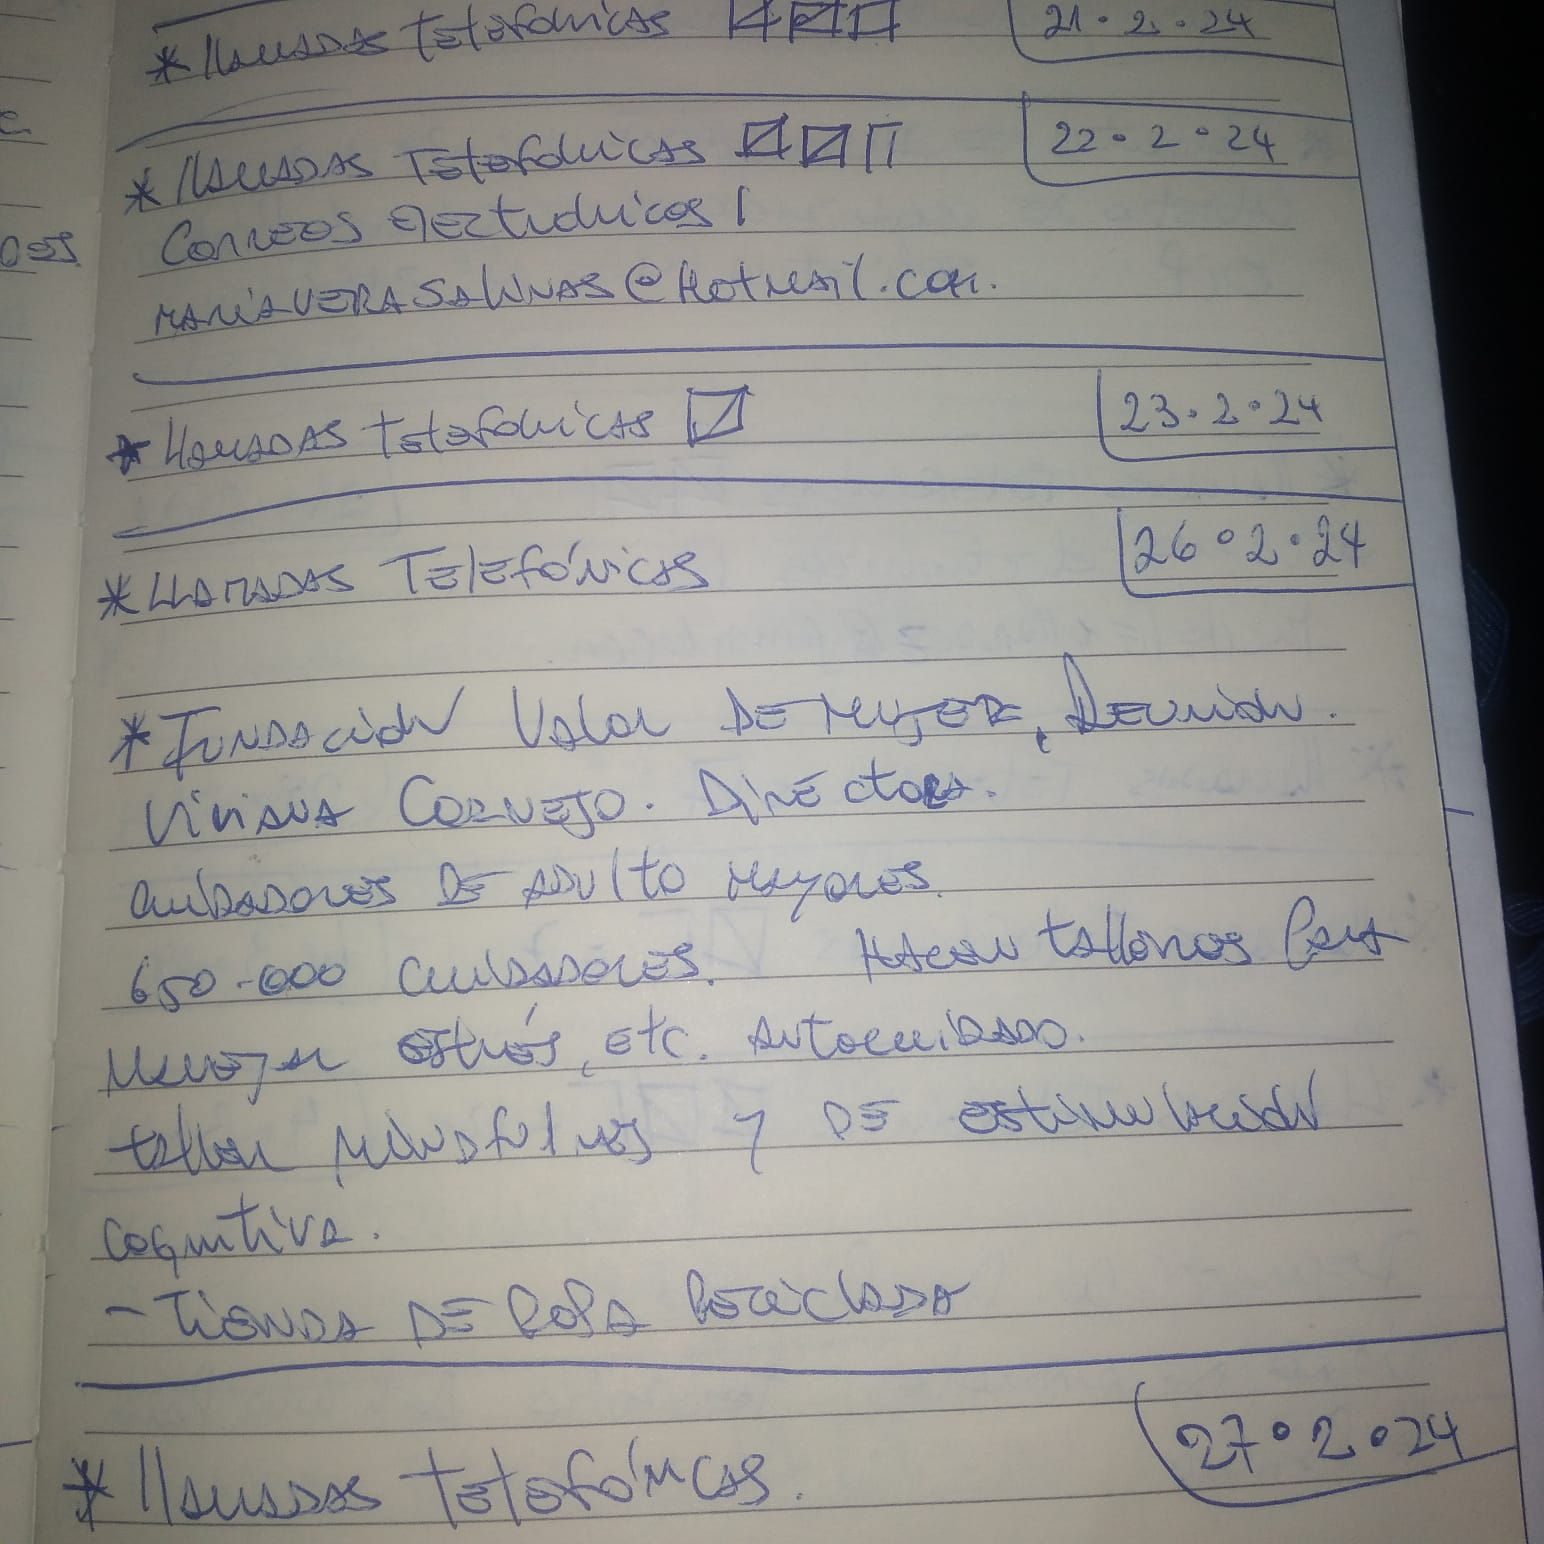 * Llamadas telefónicas
21·2·24
* Llamadas Telefónicas
22·2·24
Correos electrónicos
MARIAVERASALINAS@Hotmail.com.
* Llamadas telefónicas
23·2·24
* LLAMADAS TELEFÓNICAS
26·2·24
* FUNDACIÓN Valor DE MUJER, Reunión.
Viviana CORNEJO. DIRECTORA.
cuidadores DE ADULTO mayores.
650.000 cuidadores. Hacen talleres para
manejar estrés, etc. autocuidado.
taller mindfulnes y DE estimulación
cognitiva.
- TIENDA DE ROPA Reciclada
* llamadas telefónicas.
27·2·24